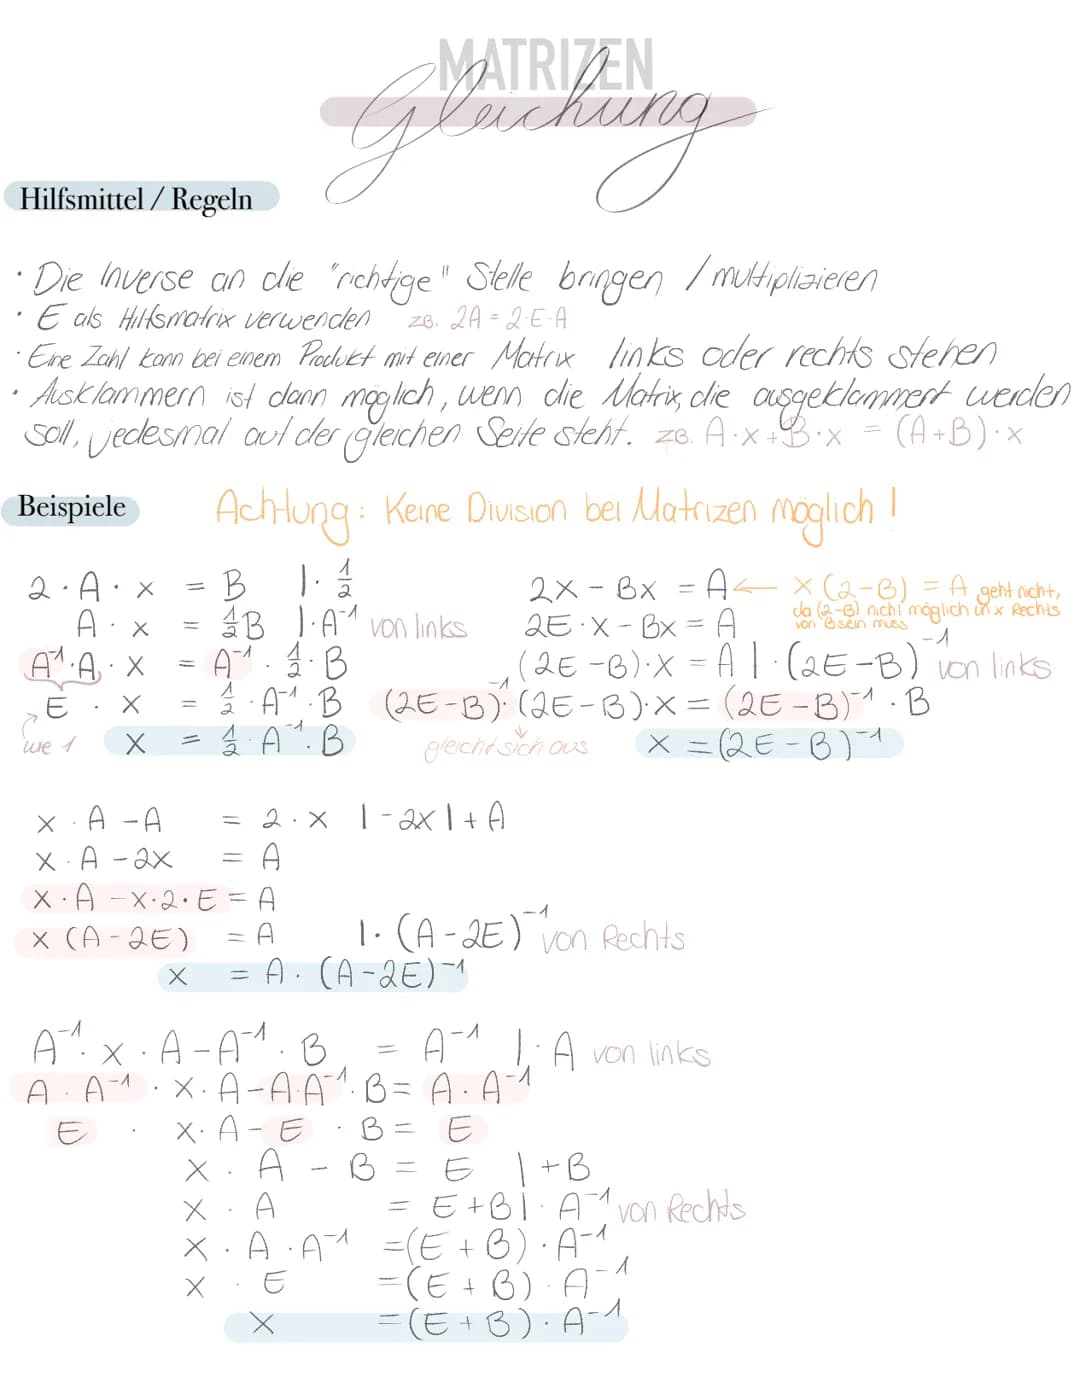 MATRIZEN
Gleichung
Hilfsmittel / Regeln
· Die Inverse an die "richtige" Stelle bringen / multiplizieren
· E als Hilfsmatrix verwenden zB. 2A = 2·E·A
· Eine Zahl kann bei einem Produkt mit einer Matrix links oder rechts stehen
· Ausklammern ist dann möglich, wenn die Matrix, die ausgeklammert werden
soll, jedesmal auf der gleichen Seite steht. zB. A·x + B·x = (A+B)·x
Beispiele
Achtung: Keine Division bei Matrizen möglich!
2·A·x = B |·½
A·x = ½B |·A⁻¹ von links
A⁻¹·A·x = A⁻¹·½·B
E·x = ½·A⁻¹·B
wie 1
x = ½·A⁻¹·B
2x - Bx = A ← x(2-B) = A geht nicht,
da (2-B) nicht möglich un x Rechts
von B sein muss
2E·x - Bx = A
(2E-B)·x = A |·(2E-B)⁻¹ von links
(2E-B)⁻¹·(2E-B)·x = (2E-B)⁻¹·B
gleicht sich aus
x = (2E-B)⁻¹
x·A - A = 2·x |-2x |+A
x·A - 2x = A
x·A - x·2·E = A
x(A-2E) = A |·(A-2E)⁻¹ von Rechts
x = A·(A-2E)⁻¹
A⁻¹·x·A - A⁻¹·B = A⁻¹ |·A von links
A·A⁻¹·x·A - A·A⁻¹·B = A·A⁻¹
E·x·A - E·B = E
x·A - B = E |+B
x·A = E+B |·A⁻¹ von Rechts
x·A·A⁻¹ = (E+B)·A⁻¹
x·E = (E+B)·A⁻¹
x = (E+B)·A⁻¹